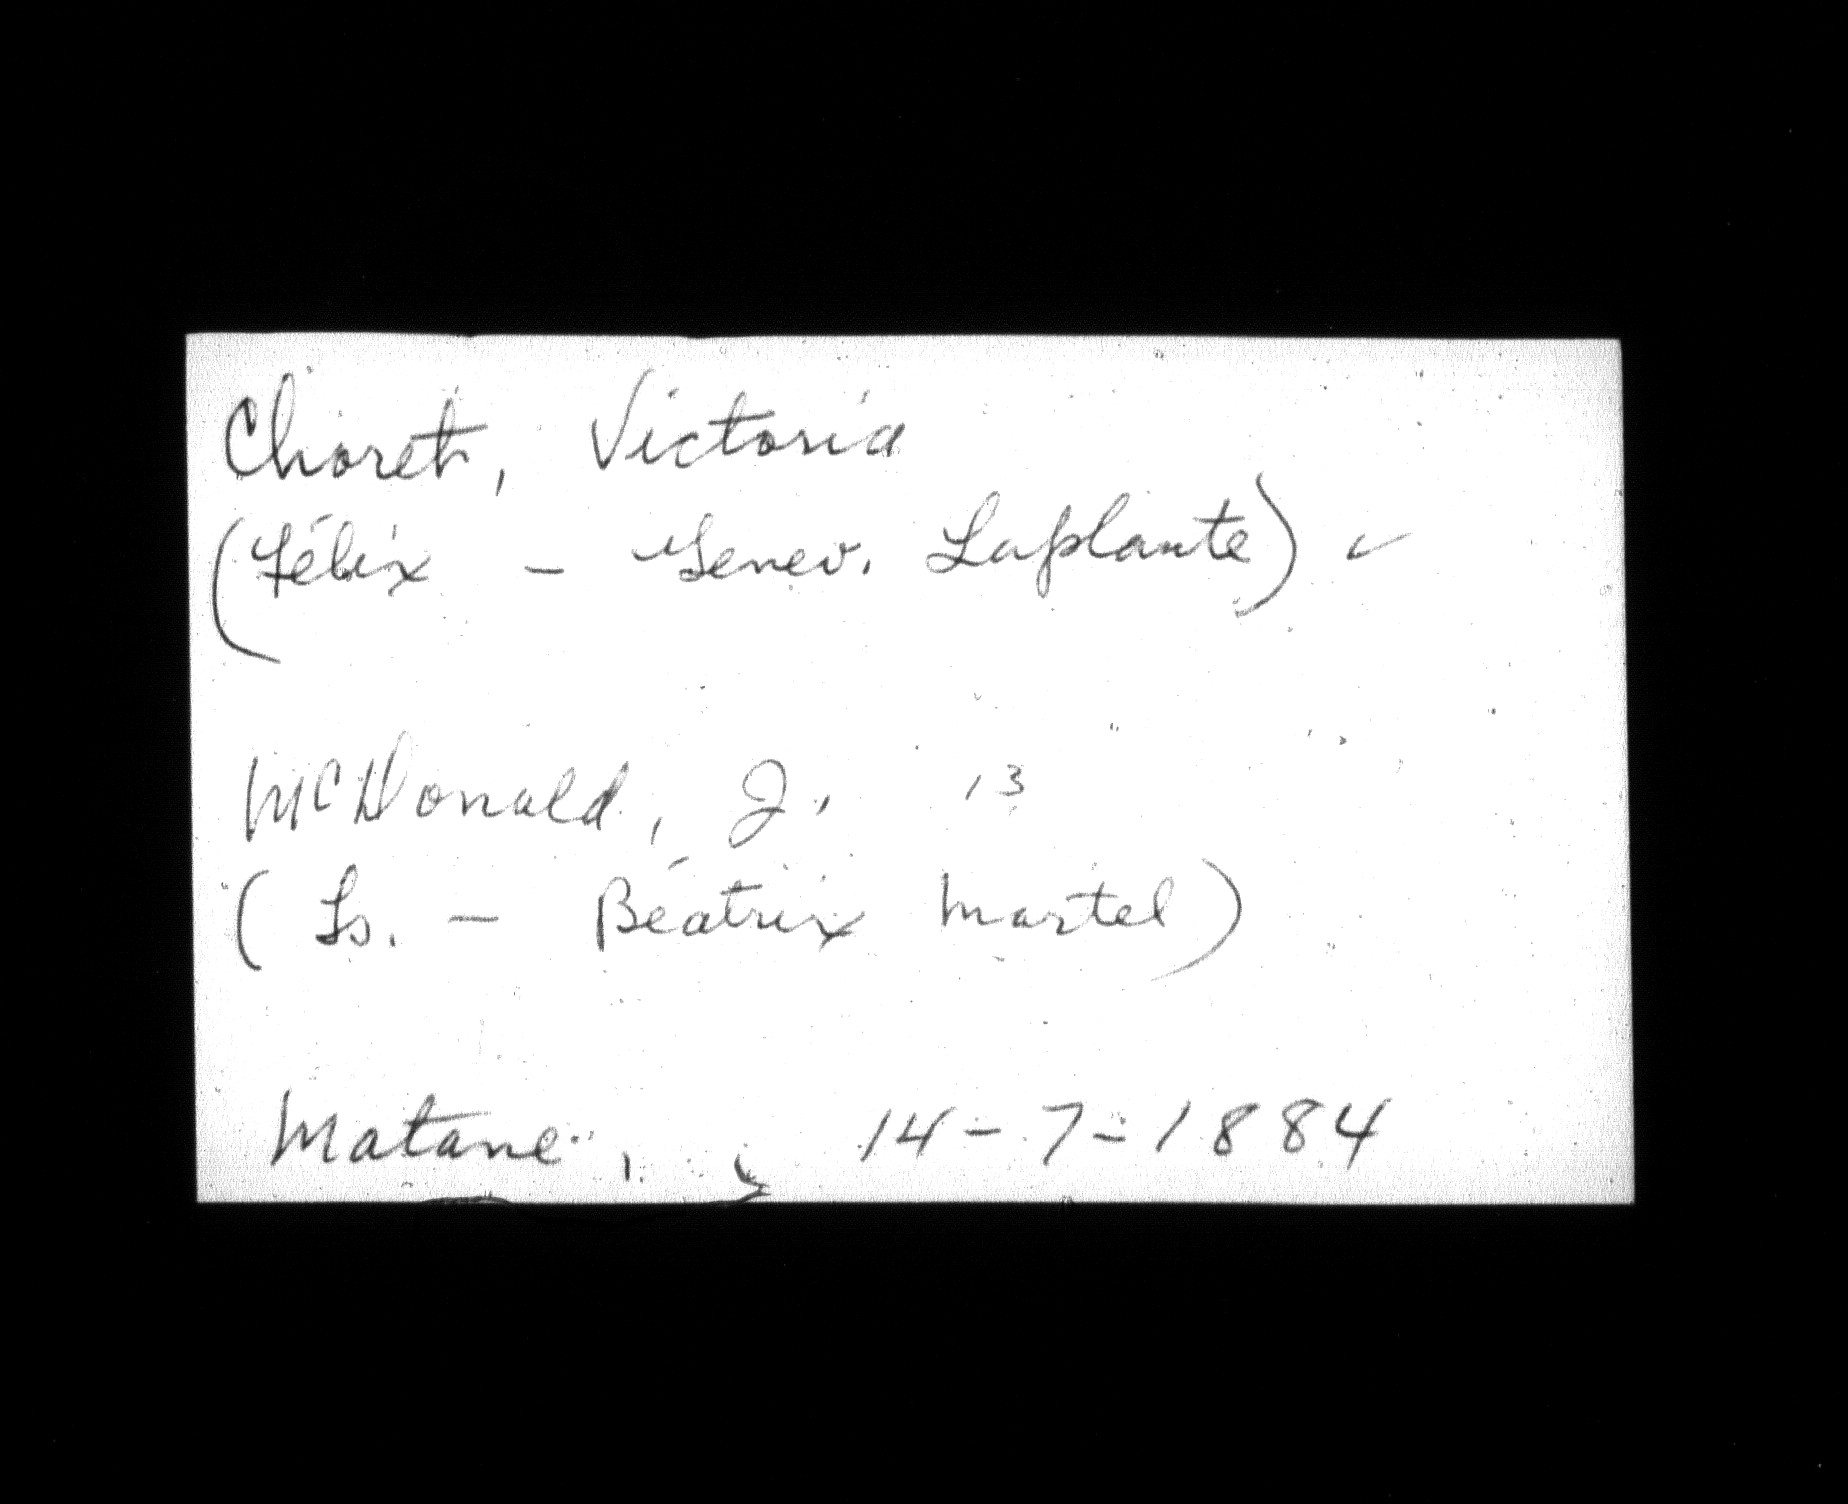 Choret, Victoria
(Félix - Genev. Laplante) ✓
McDonald, J. 13
(Ls. - Béatrix Martel)
Matane, 14-7-1884